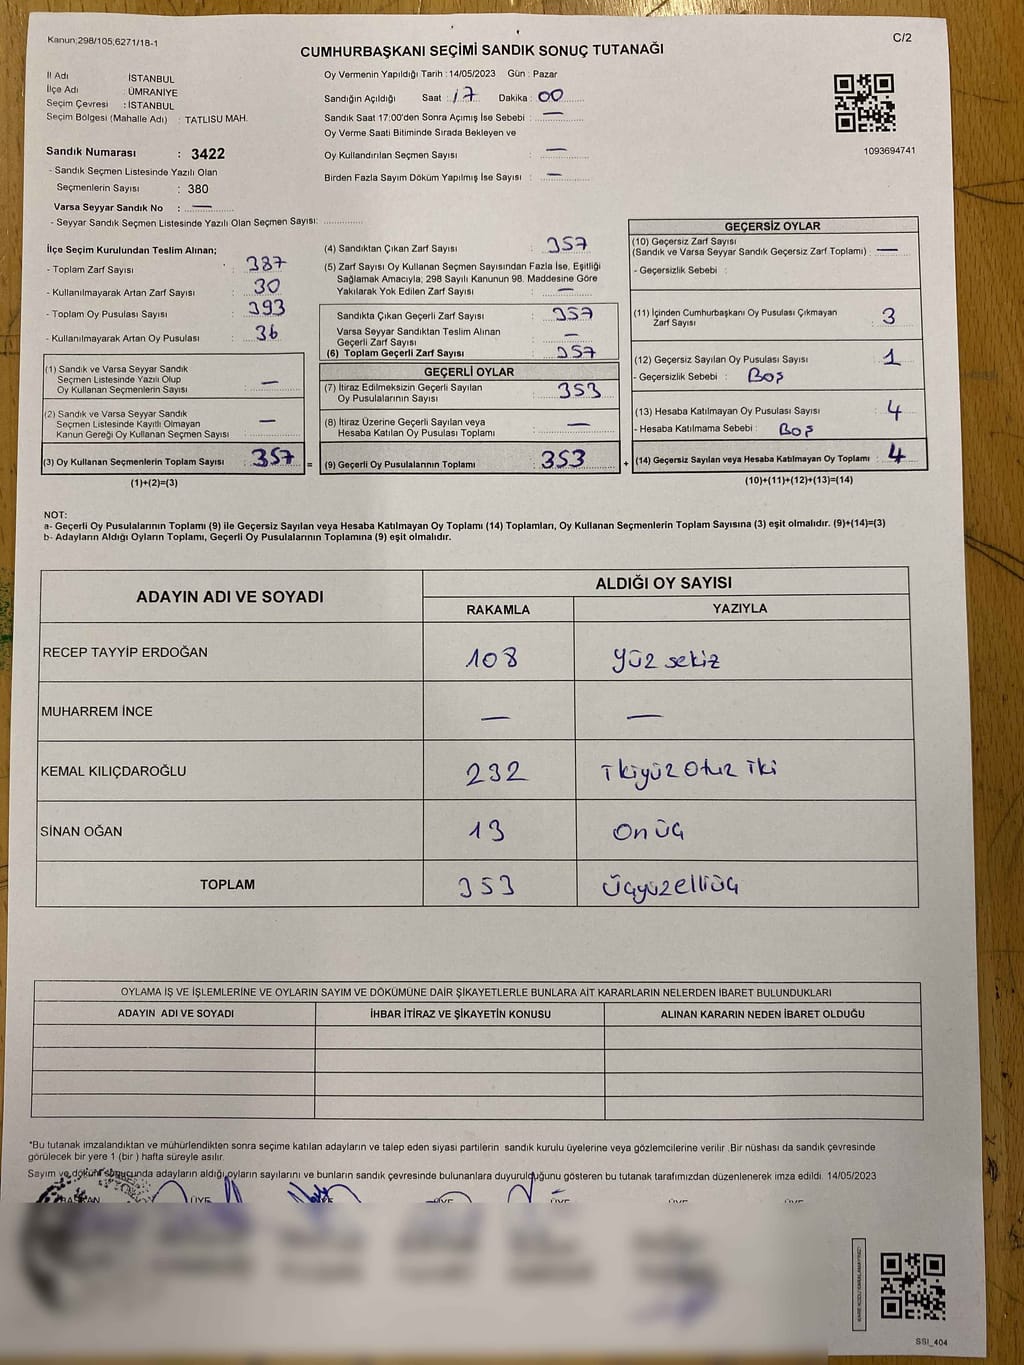 Kanun;298/105;6271/18-1
C/2
CUMHURBAŞKANI SEÇİMİ SANDIK SONUÇ TUTANAĞI
İl Adı İSTANBUL
İlçe Adı : ÜMRANİYE
Seçim Çevresi : İSTANBUL
Seçim Bölgesi (Mahalle Adı) : TATLISU MAH.
Sandık Numarası : 3422
- Sandık Seçmen Listesinde Yazılı Olan
Seçmenlerin Sayısı : 380
Varsa Seyyar Sandık No : —
- Seyyar Sandık Seçmen Listesinde Yazılı Olan Seçmen Sayısı:
Oy Vermenin Yapıldığı Tarih : 14/05/2023 Gün : Pazar
Sandığın Açıldığı Saat : 17 Dakika : 00
Sandık Saat 17:00'den Sonra Açımış İse Sebebi : —
Oy Verme Saati Bitiminde Sırada Bekleyen ve
Oy Kullandırılan Seçmen Sayısı : —
Birden Fazla Sayım Döküm Yapılmış İse Sayısı : —
1093694741
İlçe Seçim Kurulundan Teslim Alınan;
- Toplam Zarf Sayısı : 387
- Kullanılmayarak Artan Zarf Sayısı : 30
- Toplam Oy Pusulası Sayısı : 393
- Kullanılmayarak Artan Oy Pusulası : 36
(1) Sandık ve Varsa Seyyar Sandık
Seçmen Listesinde Yazılı Olup
Oy Kullanan Seçmenlerin Sayısı : —
(2) Sandık ve Varsa Seyyar Sandık
Seçmen Listesinde Kayıtlı Olmayan
Kanun Gereği Oy Kullanan Seçmen Sayısı : —
(3) Oy Kullanan Seçmenlerin Toplam Sayısı : 357
(1)+(2)=(3)
(4) Sandıktan Çıkan Zarf Sayısı : 357
(5) Zarf Sayısı Oy Kullanan Seçmen Sayısından Fazla İse, Eşitliği
Sağlamak Amacıyla, 298 Sayılı Kanunun 98. Maddesine Göre
Yakılarak Yok Edilen Zarf Sayısı : —
Sandıkta Çıkan Geçerli Zarf Sayısı : 357
Varsa Seyyar Sandıktan Teslim Alınan
Geçerli Zarf Sayısı : —
(6) Toplam Geçerli Zarf Sayısı : 357
GEÇERLİ OYLAR
(7) İtiraz Edilmeksizin Geçerli Sayılan
Oy Pusulalarının Sayısı : 353
(8) İtiraz Üzerine Geçerli Sayılan veya
Hesaba Katılan Oy Pusulası Toplamı : —
= (9) Geçerli Oy Pusulalarının Toplamı : 353
GEÇERSİZ OYLAR
(10) Geçersiz Zarf Sayısı
(Sandık ve Varsa Seyyar Sandık Geçersiz Zarf Toplamı) : —
- Geçersizlik Sebebi :
(11) İçinden Cumhurbaşkanı Oy Pusulası Çıkmayan
Zarf Sayısı : 3
(12) Geçersiz Sayılan Oy Pusulası Sayısı : 1
- Geçersizlik Sebebi : Boş
(13) Hesaba Katılmayan Oy Pusulası Sayısı : 4
- Hesaba Katılmama Sebebi : Boş
+ (14) Geçersiz Sayılan veya Hesaba Katılmayan Oy Toplamı : 4
(10)+(11)+(12)+(13)=(14)
NOT:
a- Geçerli Oy Pusulalarının Toplamı (9) ile Geçersiz Sayılan veya Hesaba Katılmayan Oy Toplamı (14) Toplamları, Oy Kullanan Seçmenlerin Toplam Sayısına (3) eşit olmalıdır. (9)+(14)=(3)
b- Adayların Aldığı Oyların Toplamı, Geçerli Oy Pusulalarının Toplamına (9) eşit olmalıdır.
ADAYIN ADI VE SOYADI
ALDIĞI OY SAYISI
RAKAMLA YAZIYLA
RECEP TAYYİP ERDOĞAN 108 yüz sekiz
MUHARREM İNCE — —
KEMAL KILIÇDAROĞLU 232 İkiyüz Otuz İki
SİNAN OĞAN 13 On üç
TOPLAM 353 Üçyüzelliüç
OYLAMA İŞ VE İŞLEMLERİNE VE OYLARIN SAYIM VE DÖKÜMÜNE DAİR ŞİKAYETLERLE BUNLARA AİT KARARLARIN NELERDEN İBARET BULUNDUKLARI
ADAYIN ADI VE SOYADI İHBAR İTİRAZ VE ŞİKAYETİN KONUSU ALINAN KARARIN NEDEN İBARET OLDUĞU
*Bu tutanak imzalandıktan ve mühürlendikten sonra seçime katılan adayların ve talep eden siyasi partilerin sandık kurulu üyelerine veya gözlemcilerine verilir. Bir nüshası da sandık çevresinde
görülecek bir yere 1 (bir ) hafta süreyle asılır.
Sayım ve dökümü sonucunda adayların aldığı oyların sayılarını ve bunların sandık çevresinde bulunanlara duyurulduğunu gösteren bu tutanak tarafımızdan düzenlenerek imza edildi. 14/05/2023
BAŞKAN ÜYE ÜYE ÜYE ÜYE ÜYE
SSI_404